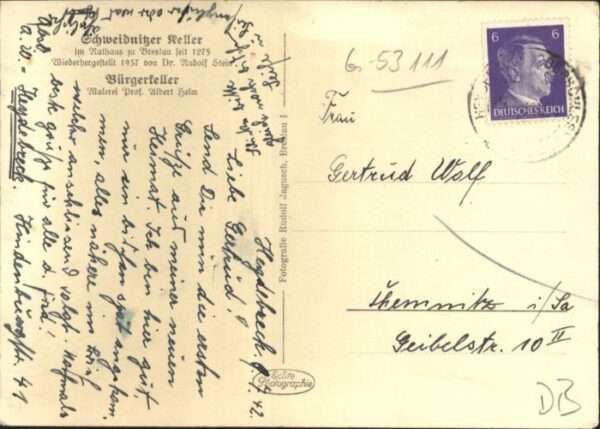 Schweidnitzer Keller
im Rathaus zu Breslau seit 1275
Wiederhergestellt 1937 von Dr. Rudolf Stein
Bürgerkeller
Malerei Prof. Albert Helm
Fotografie Rudolf Jagusch, Breslau I
Echte
Photographie
6 6
DEUTSCHES REICH
53111
Frau
Gertrud Wolf
Chemnitz i/Sa
Geibelstr. 10 II
DB
42.
Liebe Gertrud!
Send Dir nun die ersten
Grüße aus meiner neuen
Heimat. Ich bin hier gut,
nur ein bißchen spät angekom.
men, alles nähere im Brief
welcher anschliesend folgt. Nochmals
erste Grüße für alle
A. W. Heydebreck Hindenburgstr. 41